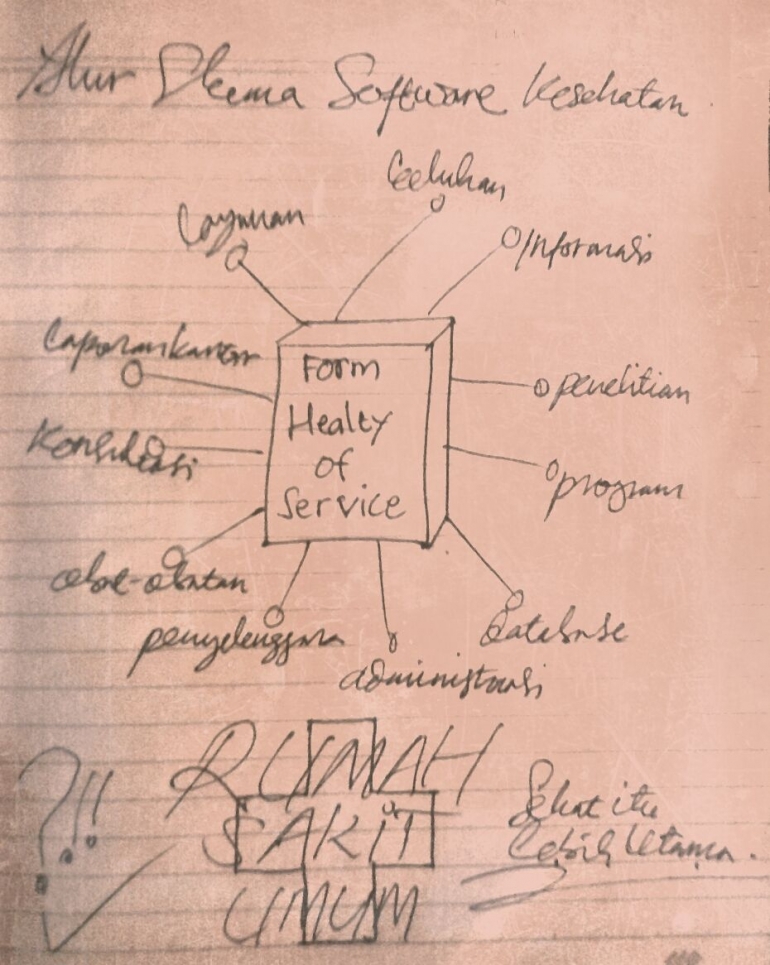 Alur Skema Software Kesehatan
Keluhan
Layanan
Informasi
Laporan kantor
Form
Healty
of
Service
penelitian
Konsultasi
program
obat-obatan
penyelenggara
database
administrasi
RUMAH
SAKIT
UMUM
?!!
Sehat itu
Lebih Utama.